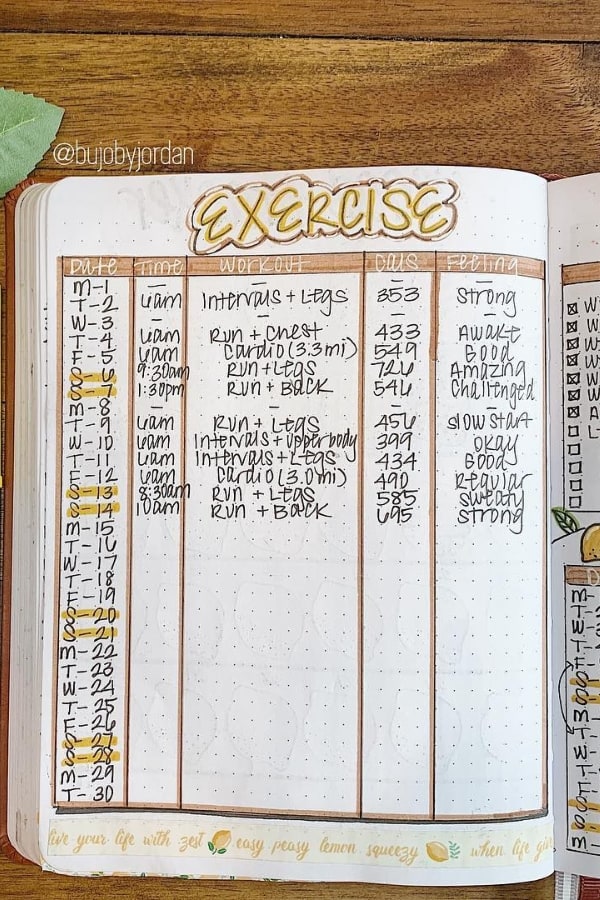 @bujobyjordan
EXERCISE
Date Time Workout Cals Feeling
M-1 — — — —
T-2 6am Intervals + Legs 353 Strong
W-3 — — — —
T-4 6am Run + Chest 433 Awake
F-5 6am Cardio (3.3mi) 549 Good
S-6 9:30am Run + Legs 726 Amazing
S-7 1:30pm Run + Back 546 Challenged
M-8 — — — —
T-9 6am Run + Legs 456 Slow start
W-10 6am Intervals + upperbody 399 okay
T-11 6am Intervals + Legs 434 Good
F-12 6am Cardio (3.0mi) 490 Regular
S-13 8:30am Run + Legs 585 Sweaty
S-14 10am Run + Back 695 Strong
M-15
T-16
W-17
T-18
F-19
S-20
S-21
M-22
T-23
W-24
T-25
F-26
S-27
S-28
M-29
T-30
live your life with zest easy peasy lemon squeezy when life giv